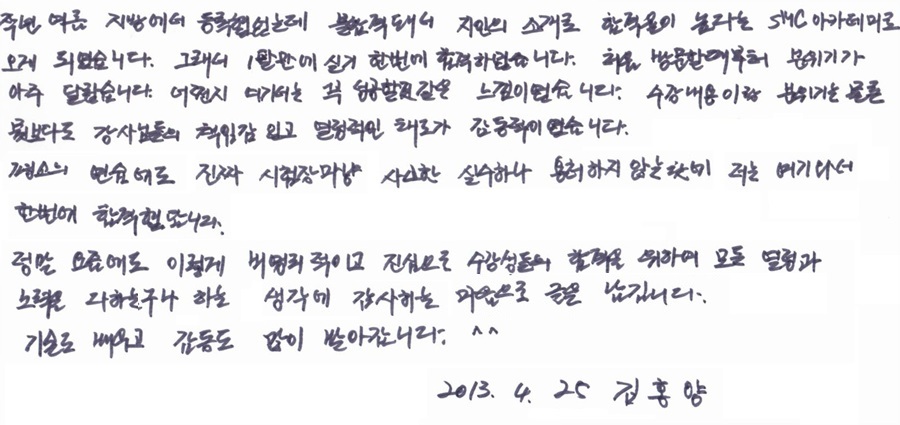 작년 여름 지방에서 등록했었는데 불합격돼서 지인의 소개로 합격율이 높다는 SMC아카데미로
오게 되었습니다. 그래서 1달만에 실기 한번에 합격하였습니다. 처음 방문할때부터 분위기가
아주 달랐습니다. 어쩐지 여기서는 꼭 성공할것같은 느낌이였습니다. 수강내용이랑 분위기는 물론
무엇보다도 강사님들의 책임감 있고 열정적인 태도가 감동적이였습니다.
평소의 연습에도 진짜 시험장마냥 사소한 실수하나 용허하지 않는탓에 저는 여기와서
한번에 합격했답니다.
정말 요즘에도 이렇게 비영리적이고 진심으로 수강생들의 합격을 위하여 모든 열정과
노력을 다하는구나 하는 생각에 감사하는 마음으로 글을 남깁니다.
기술도 배우고 감동도 많이 받아갑니다. ^^
2013. 4. 25 김홍양